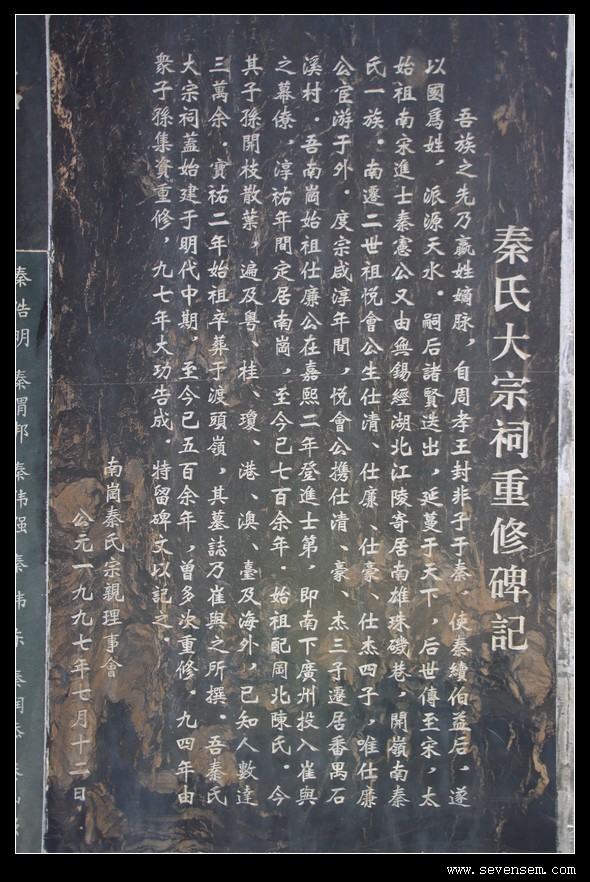 秦氏大宗祠重修碑記
吾族之先乃嬴姓嫡脉，自周孝王封非子于秦，使秦續伯益后，遂
以國爲姓，派源天水．嗣后諸賢迭出，延蔓于天下，后世傳至宋，太
始祖南宋進士秦憲公又由無錫經湖北江陵寄居南雄珠磯巷，開嶺南秦
氏一族．南遷二世祖悦會公生仕清、仕廉、仕豪、仕杰四子，唯仕廉
公宦游于外．度宗咸淳年間，悦會公携仕清、豪、杰三子遷居番禺石
溪村．吾南崗始祖仕廉公在嘉熙二年登進士第，即南下廣州投入崔與
之幕僚，淳祐年間定居南崗，至今已七百余年．始祖配岡北陳氏．今
其子孫開枝散葉，遍及粤、桂、瓊、港、澳、臺及海外，已知人數達
三萬余．寳祐二年始祖卒葬于渡頭嶺，其墓誌乃崔與之所撰．吾秦氏
大宗祠蓋始建于明代中期，至今已五百余年，曾多次重修．九四年由
衆子孫集資重修，九七年大功告成．特留碑文以記之．
南崗秦氏宗親理事會
公元一九九七年七月十二日
秦浩明 秦渭邦 秦偉强 秦
www.sevensem.com